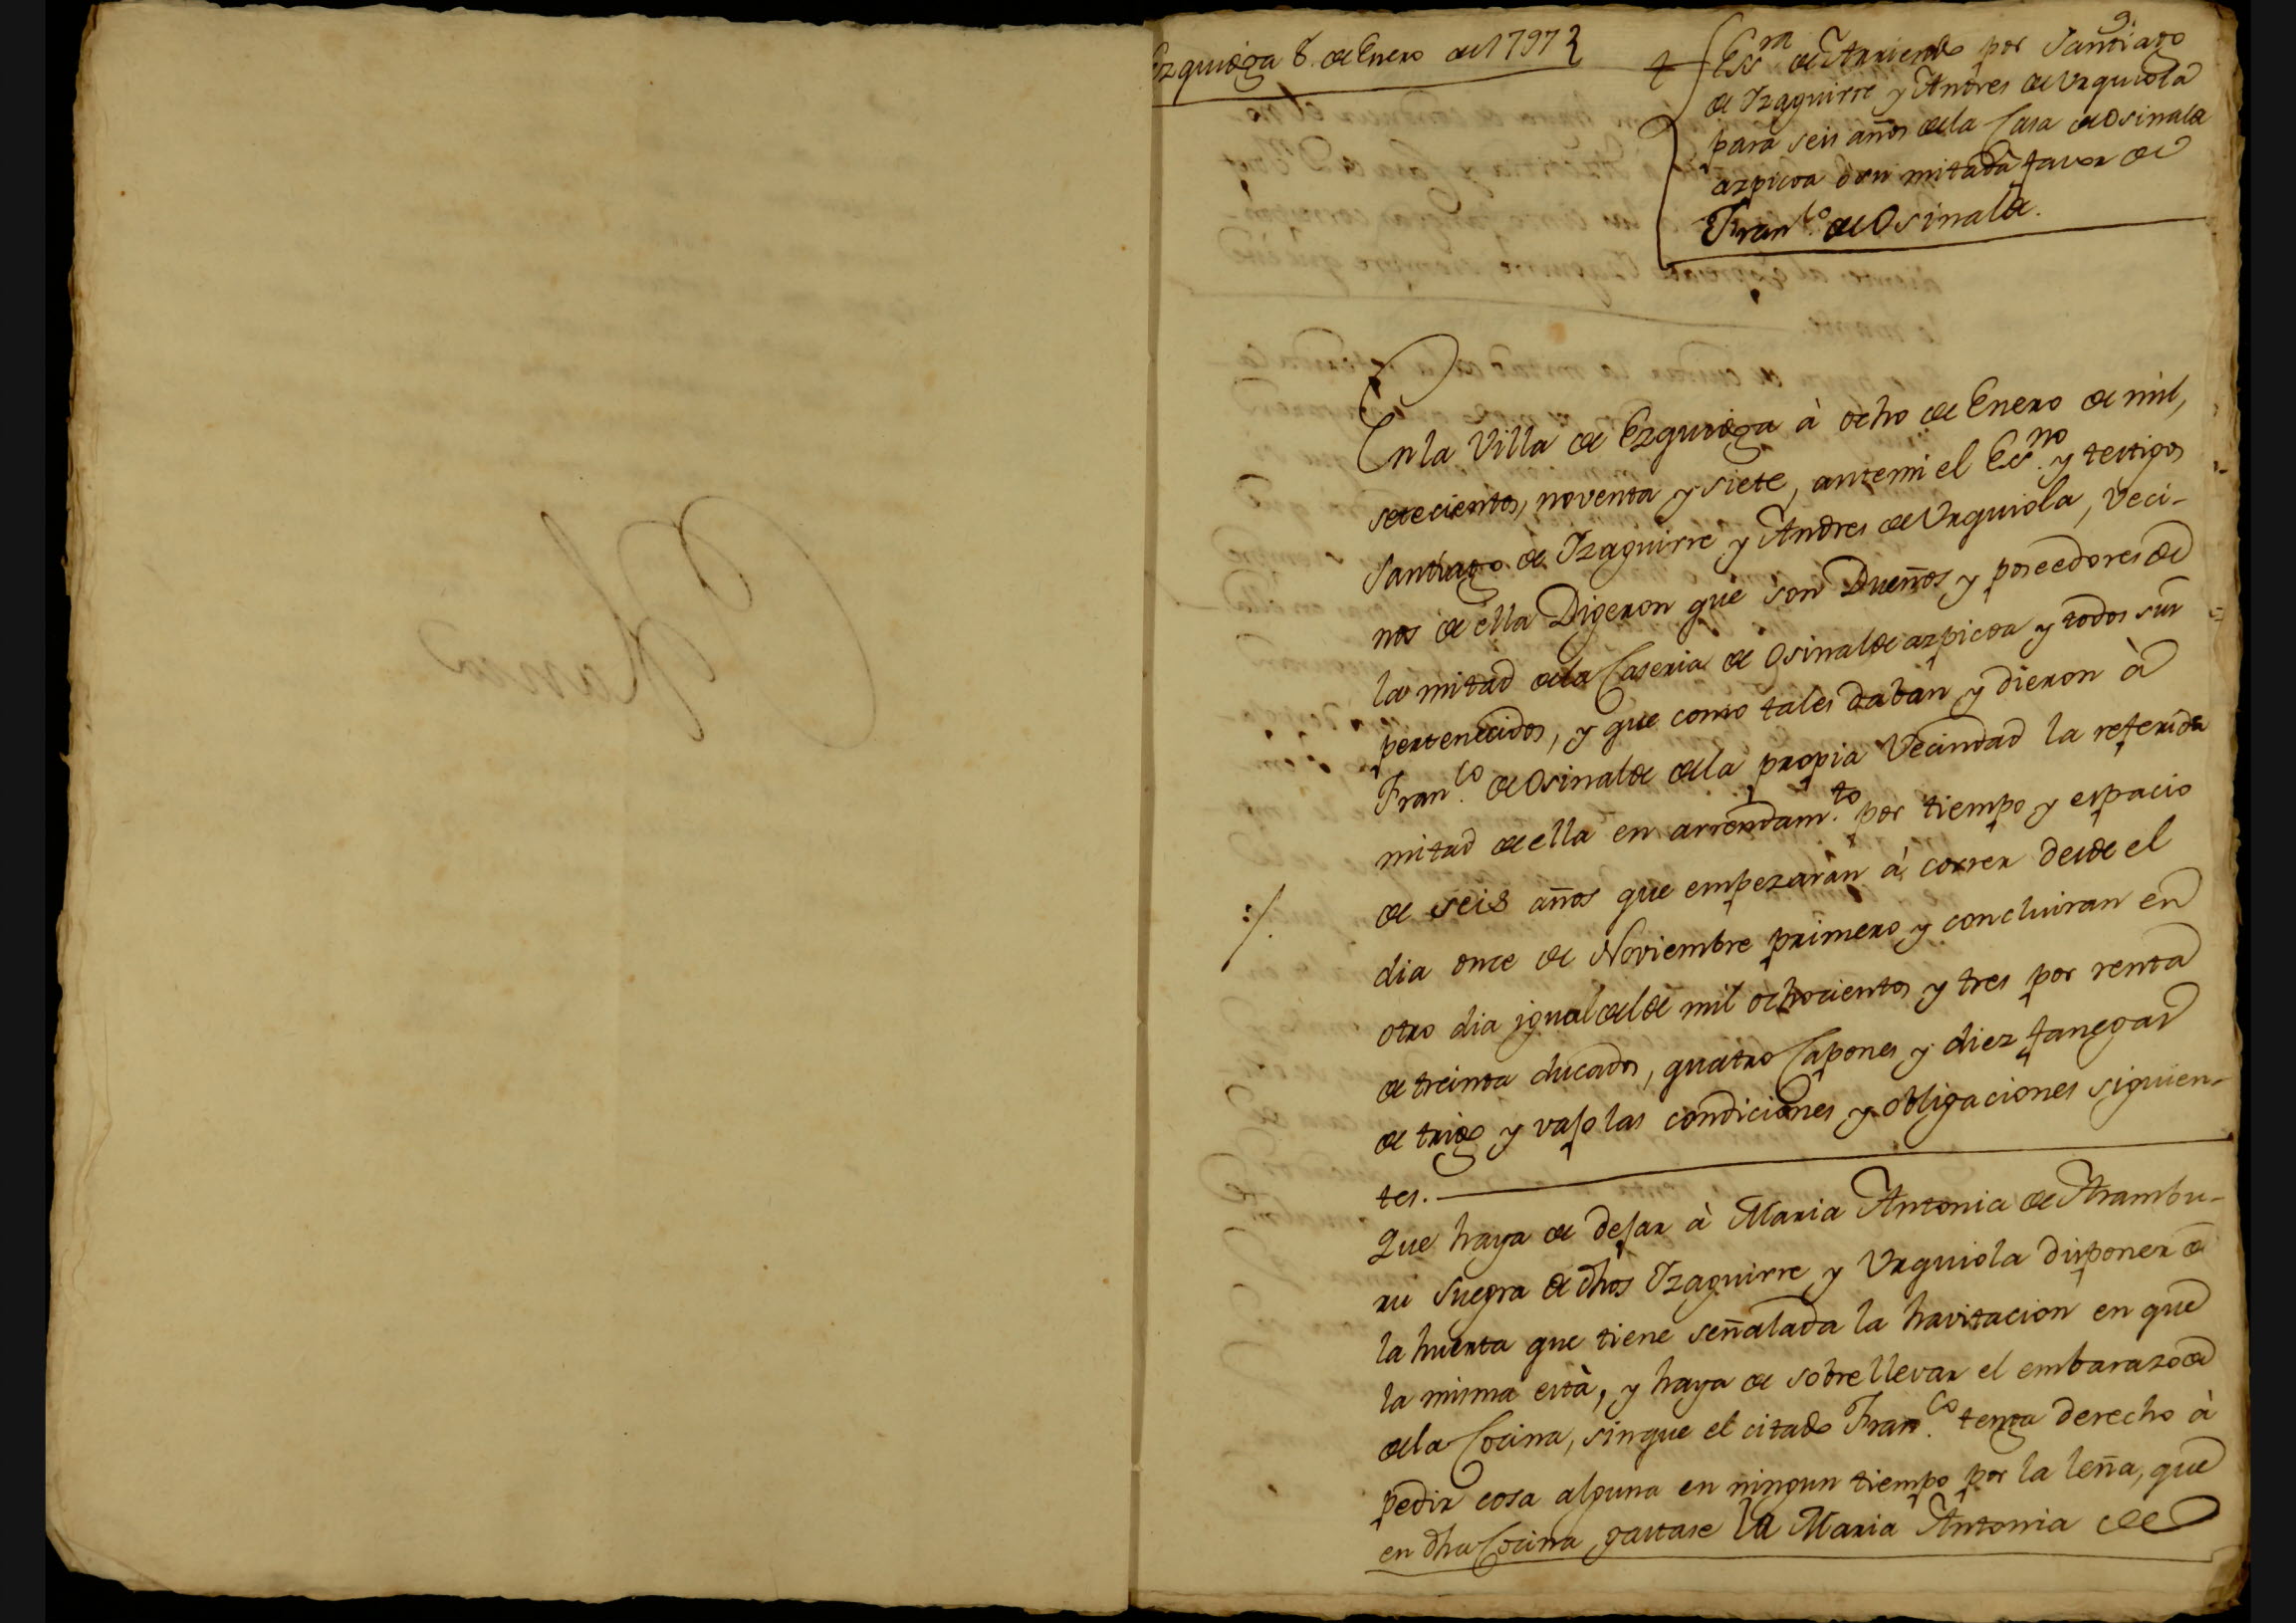 9.
Ezquioga 8. de Enero de 1797
Essra de Arriendo por Santiago
de Yzaguirre y Andres de Urquiola
para seis años de la Casa de Osinalde
azpicoa ò su mitad à favor de
Franco. de Osinalde.
En la Villa de Ezquioga à ocho de Enero de mil,
setecientos, noventa y siete, antemi el Essno. y testigos
Santiago de Yzaguirre y Andres de Urquiola, veci-
nos de ella Digeron que son Dueños y poseedores de
la mitad de la Caseria de Osinalde azpicoa y todos sus
pertenecidos, y que como tales daban y dieron à
Franco. de Osinalde de la propia Vecindad la referida
mitad de ella en arrendamto. por tiempo y espacio
de seis años que empezaràn à correr desde el
:/.
dia once de Noviembre primero y concluiran en
otro dia igual del de mil ochocientos y tres por renta
de treinta ducados, quatro Capones y diez fanegas
de trigo y vajo las condiciones y obligaciones siguien-
tes.
Que haya de dejar à Maria Antonia de Arambu-
ru suegra de dhos Yzaguirre y Urquiola disponer de
la huerta que tiene señalada la havitacion en que
la misma està, y haya de sobrellevar el embarazo de
de la Cocina, sinque el citado Franco. tenga derecho à
pedir cosa alguna en ningun tiempo por la leña, que
en dha Cocina gastase la Maria Antonia de